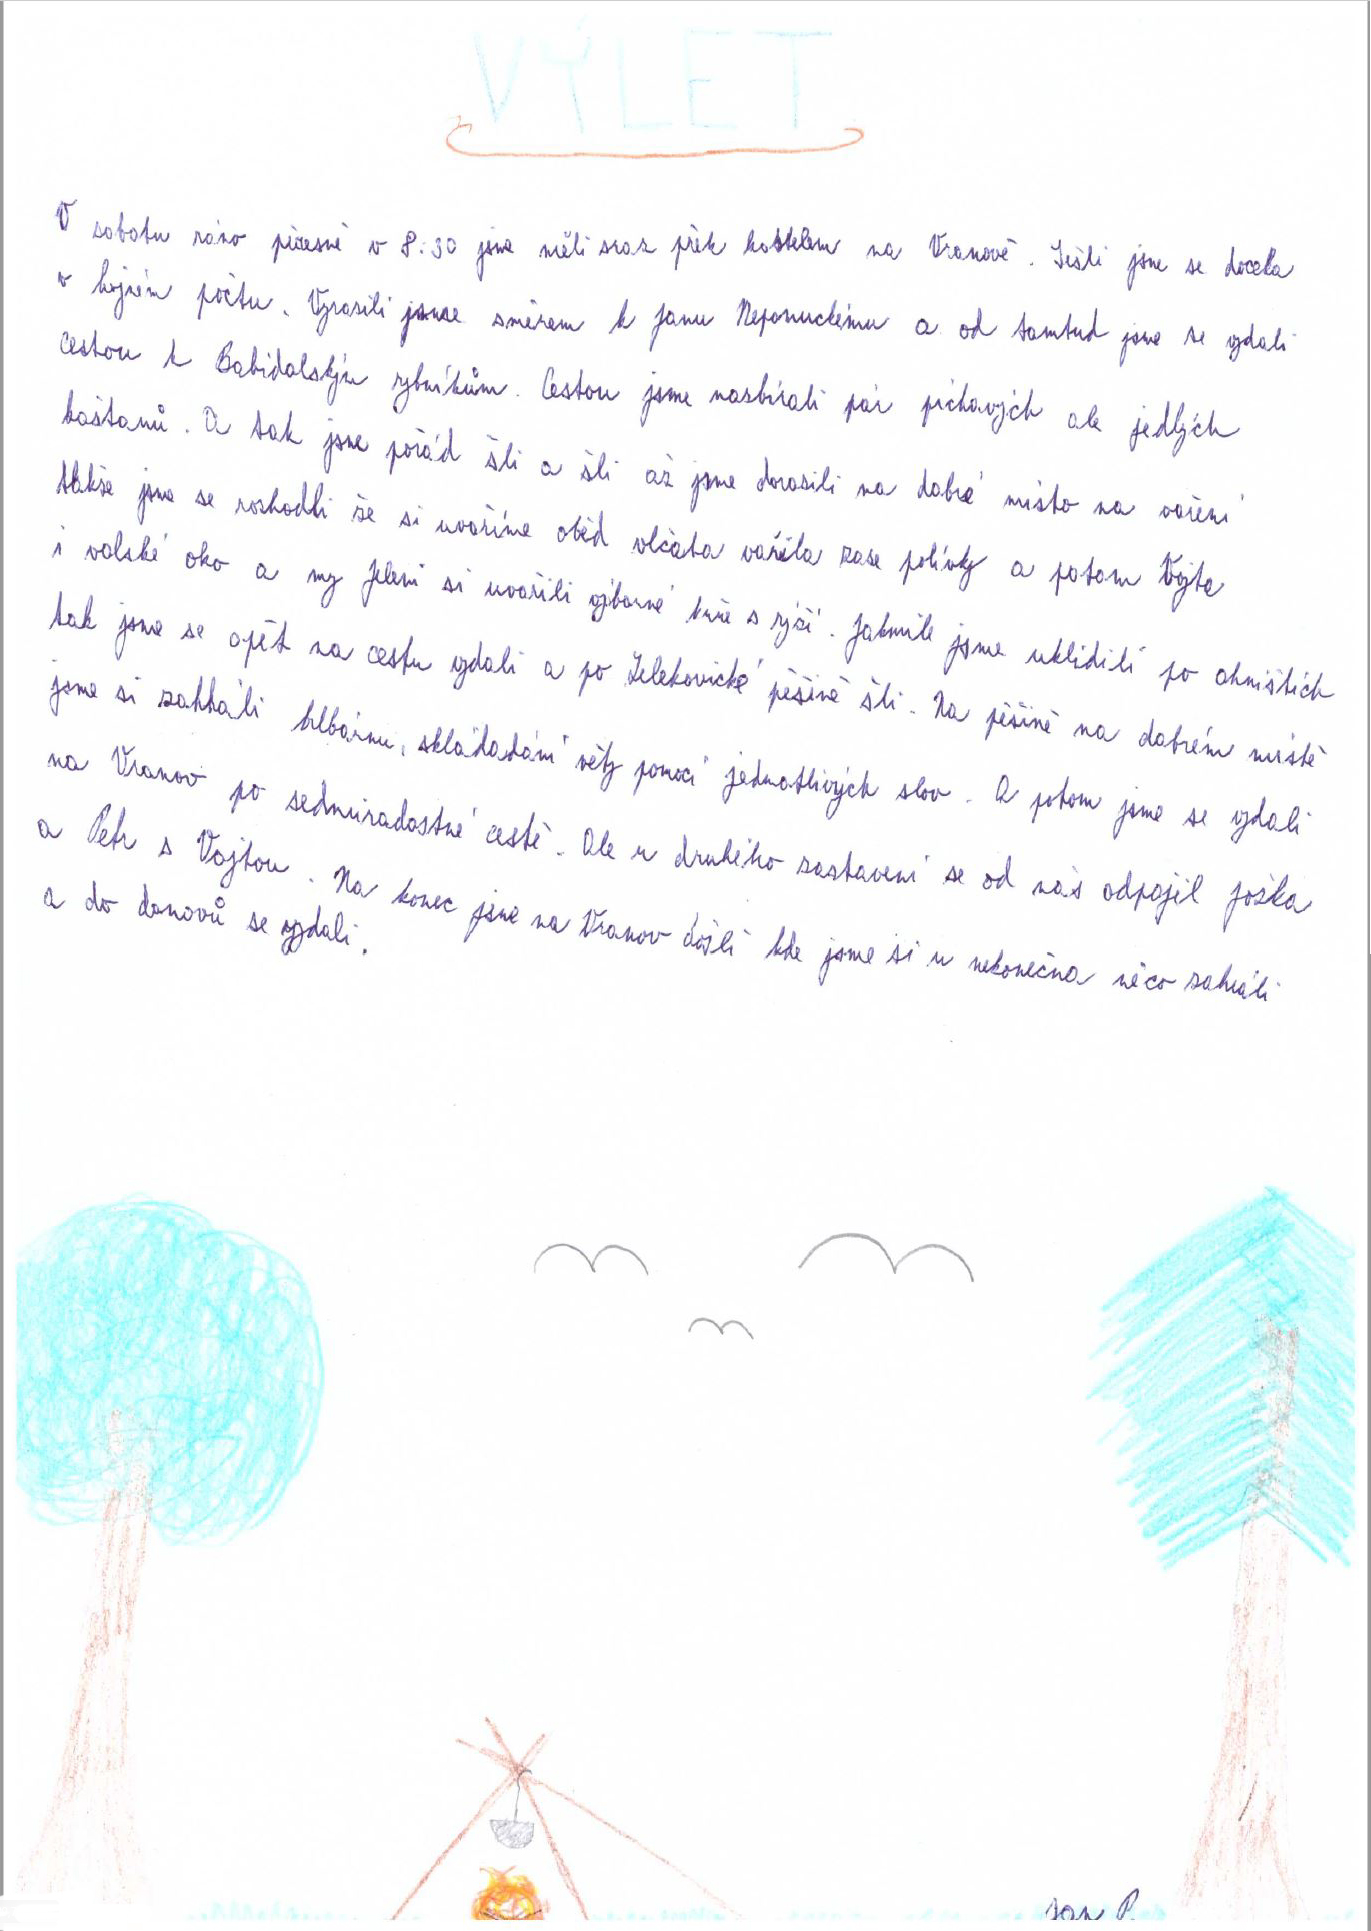 VÝLET
V sobotu ráno přesně v 8:30 jsme měli sraz přek kostelem na Vranově. Sešli jsme se docela
v hojném počtu. Vyrasili jsme směrem k Janu Nepomuckému a od tamtud jsme se vydali
cestou k Babidolským rybníkům. Cestou jsme nasbírali pár píchavých ale jedlých
kaštanů. A tak jsme pořád šli a šli až jsme dorasili na dobré místo na vaření
takže jsme se rozhodli že si uvaříme oběd vlčata vařila zase polívky a potom Vojta
i volské oko a my Jeleni si uvařili výborné kuře s rýží. Jakmile jsme uklidili po ohništích
tak jsme se opět na cestu vydali a po Lelekovické pěšině šli. Na pěšině na dobrém místě
jsme si zahháli hlbárnu, skládadání věty pomocí jednotlivých slov. A potom jsme se vydali
na Vranov po sedmiradostné cestě. Ale u druhého zastavení se od nás odpojil Joška
a Petr s Vojtou. Na konec jsme na Vranov došli kde jsme si u nekonečna něco zahráli
a do domovů se vydali.
Jan P.